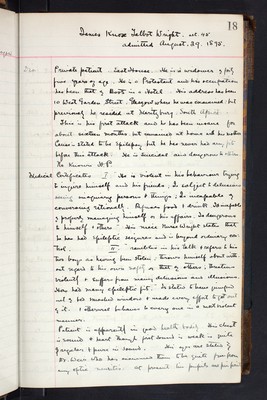 18
James Knox Talbot Wright. aet. 45
admitted August. 29. 1895.
Private patient East House. He is a widower of forty
five years of age. He is a Protestant and his occupation
has been that of Boots in a Hotel. His address has been
10 West Garden Street. Glasgow where he was removed but
previously he resided at Maritzburg. South Africa.
This is his first attack and he has been insane for
about sixteen months but remained at home with his mother.
Cause is stated to be epilepsy, but he has never had any fit
before this attack. He is suicidal and dangerous to others.
Medical Certificates I. He is violent in his behaviour trying
to injure himself and his friends; is subject to delusions
seeing imaginary persons & things; is incapable of
conversing rationally. Refuses food & drink. Is incapable
of properly managing himself or his affairs. Is dangerous
to himself & others. His niece Minnie Wright states that
he has had epileptic seizures and is beyond ordinary con-
trol. II incoherent in his talk & refers to his
two boys as having been stolen; throws himself about with-
out regard to his own safety or that of others; sometimes
violent & suffers from many delusions and illusions.
Has had many epileptic fits. Is stated to have jumped
out of bed smashed windows & made every effort to get out
of it. & otherwise behaves to every one in a most violent
manner.
Patient is apparently in good health bodily. His chest
is sound & heart though first sound is weak is quite
regular & pure in sound. His eyes are stated by
Dr. Weir who has examined them to be quite free from
any optic neuritis. At present his pupils are